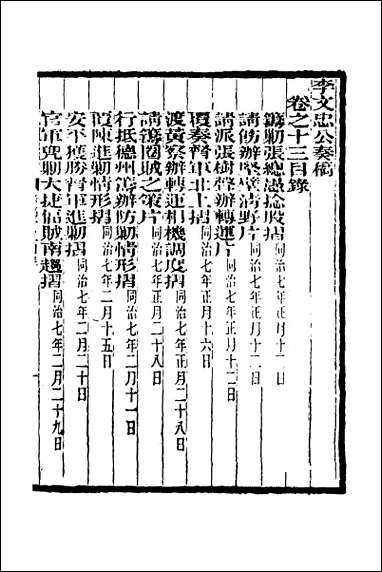 李文忠公奏稿
卷之十三目錄
鐫勒張總愚捻股摺同治七年正月十二日
請飭辦堅壁清野片同治七年正月十二日
請派張樹聲辦轉運片同治七年正月十二日
覆奏督軍北上摺同治七年正月十六日
渡黃察辦轉運相機調度摺同治七年正月二十八日
請籌圈賊之策片同治七年正月二十八日
行抵德州籌辦防勦情形摺同治七年二月十一日
覆陳進勦情形摺同治七年二月十五日
安平獲勝督軍進勦摺同治七年二月二十日
官軍兜勦大捷偪賊南趨摺同治七年二月二十九日